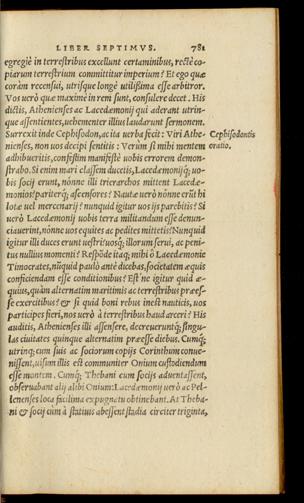 LIBER SEPTIMVS. 781
egregiè in terrestribus excellunt certaminibus, rectè co-
piarum terrestrium committitur imperium? Et ego quæ
coràm recensui, utrisque longè utilißima esse arbitror.
Vos uerò quæ maximè in rem sunt, consulere decet. His
dictis, Athenienses ac Lacedæmonij qui aderant utrin-
que assentientes, uehementer illius laudarunt sermonem.
Surrexit inde Cephisodon, ac ita uerba fecit: Viri Athe-
Cephisodontis
nienses, non uos decipi sentitis: Verùm si mihi mentem
oratio.
adhibueritis, confestim manifestè uobis errorem demon-
strabo. Si enim mari classem duceris, Lacedæmonijq; uo-
bis socij erunt, nónne illi trierarchos mittent Lacedæ-
monios? pariterq; ascensores? Nautæ uerò nónne erũt hi
lotæ uel mercenarij? nunquid igitur uos ijs parebitis? Si
uerò Lacedæmonij uobis terra militandum esse denun-
ciauerint, nónne uos equites ac pedites mittetis? Nunquid
igitur illi duces erunt uestri? uosq; illorum serui, ac peni-
tus nullius momenti? Respõde itaq; mihi ô Lacedæmonie
Timocrates, nũquid paulò antè dicebas, societatem æquis
conficiendam esse conditionibus? Est ne igitur quid æ-
quius, quàm alternatim maritimis ac terrestribus præes-
se exercitibus? & si quid boni rebus inest nauticis, uos
participes fieri, nos uerò à terrestribus haud arceri? His
auditis, Athenienses illi assensere, decreueruntq; singu-
las ciuitates quinque alternatim præesse diebus. Cumq;
utrinq; cum suis ac sociorum copijs Corinthum conue-
nissent, uisum illis est communiter Onium custodiendum
esse montem. Cumq; Thebani cum socijs aduentassent,
obseruabant alij alibi Onium: Lacedæmonij uerò ac Pel-
lenenses loca facilima expugnatu obtinebant. At Theba-
ni & socij cùm à statiuis abessent stadia circiter triginta,